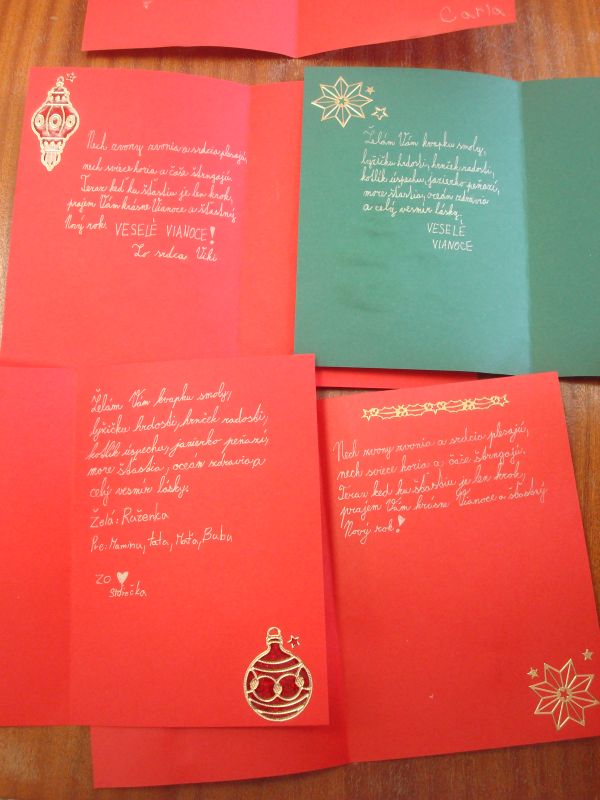 Carla
Nech zvony zvonia a srdcia plesajú,
nech sviece horia a čaše štrngajú.
Teraz keď ku šťastiu je len krok,
prajem Vám krásne Vianoce a šťastný
Nový rok. VESELÉ VIANOCE!
Zo srdca Viki
Želám Vám kvapku smoly,
lyžičku hrdosti, hrnček radosti,
kotlík úspechu, jazierko peňazí,
more šťastia, oceán zdravia
a celý vesmír lásky.
VESELÉ
VIANOCE
Želám Vám kvapku smoly,
lyžičku hrdosti, hrnček radosti,
kotlík úspechu, jazierko peňazí,
more šťastia, oceán zdravia a
celý vesmír lásky.
Želá: Ruženka
Pre: Maminu, Tata, Maťa, Bubu
ZO
srdiečka
Nech zvony zvonia a srdcia plesajú,
nech sviece horia a čaše štrngajú.
Teraz keď ku šťastiu je len krok,
prajem Vám krásne Vianoce a šťastný
Nový rok!